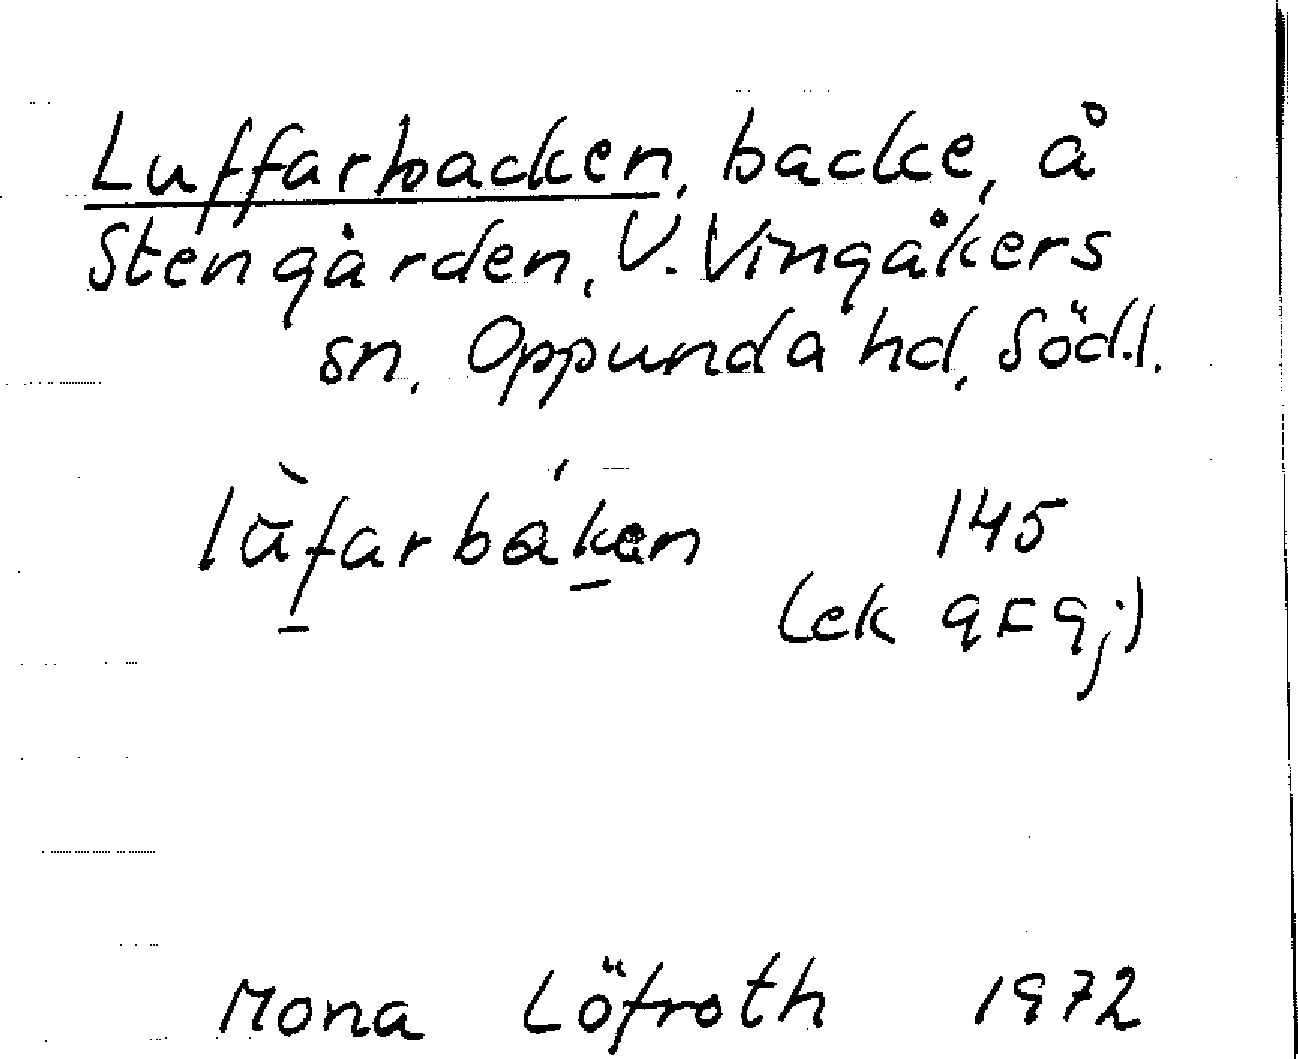 Luffarbacken, backe, å
Stengården, V. Vingåkers
sn, Oppunda hd, Söd.l.
lùfarbáken 145
(ek 9F9j)
Mona Löfroth 1972